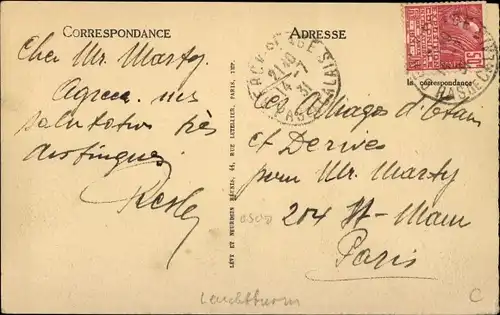 CORRESPONDANCE
Cher Mr. Marty.
Agréez mes
salutations très
distinguées
LÉVY ET NEURDEIN RÉUNIS, 44, RUE LETELLIER, PARIS, IMP.
ADRESSE
21 40
14 - 7
31
PAS DE CALAIS
la correspondance
et Dérivés
pour Mr. Marty
204 St-Maur
Paris
Leuchtturm
C